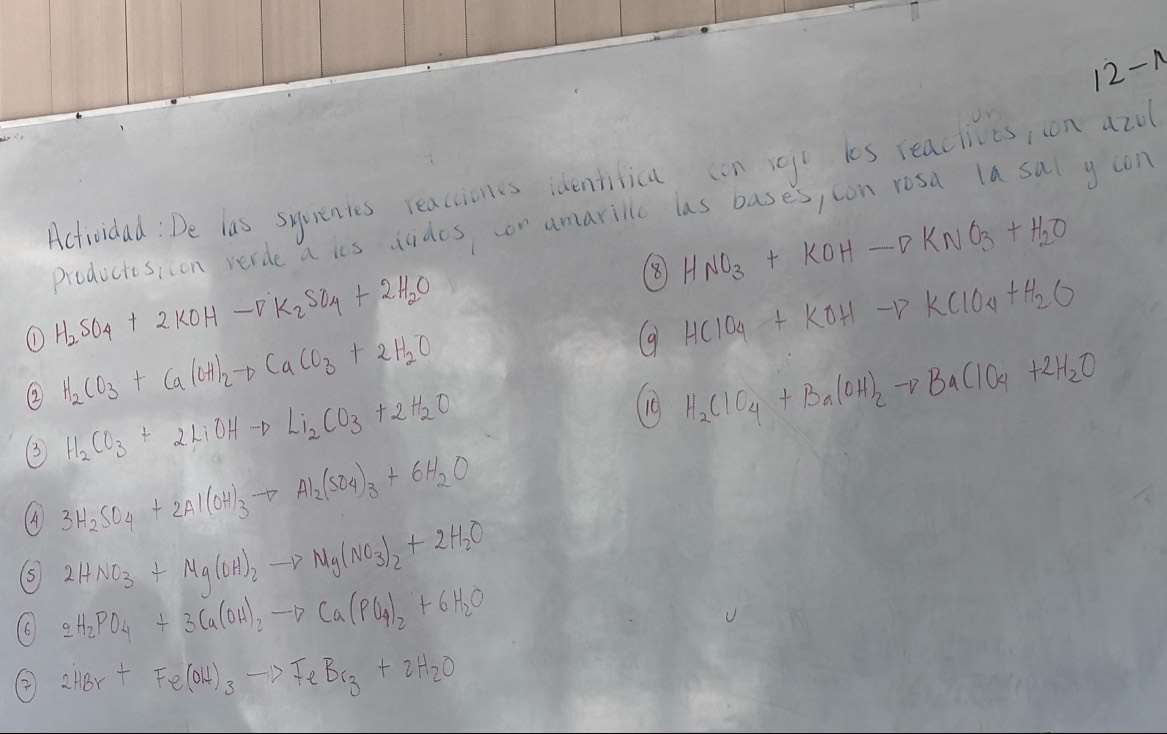 12-
Actividad: De las siguientes reacciones identifica con rojo los reactivos, con azul
productos, con verde a los ácidos, con amarillo las bases, con rosa la sal y con
① H₂SO₄ + 2KOH → K₂SO₄ + 2H₂O
② H₂CO₃ + Ca(OH)₂ → CaCO₃ + 2H₂O
③ H₂CO₃ + 2LiOH → Li₂CO₃ + 2H₂O
④ 3H₂SO₄ + 2Al(OH)₃ → Al₂(SO₄)₃ + 6H₂O
⑤ 2HNO₃ + Mg(OH)₂ → Mg(NO₃)₂ + 2H₂O
⑥ 2H₂PO₄ + 3Ca(OH)₂ → Ca(PO₄)₂ + 6H₂O
⑦ 2HBr + Fe(OH)₃ → FeBr₃ + 2H₂O
⑧ HNO₃ + KOH → KNO₃ + H₂O
⑨ HClO₄ + KOH → KClO₄ + H₂O
⑩ H₂ClO₄ + Ba(OH)₂ → BaClO₄ + 2H₂O